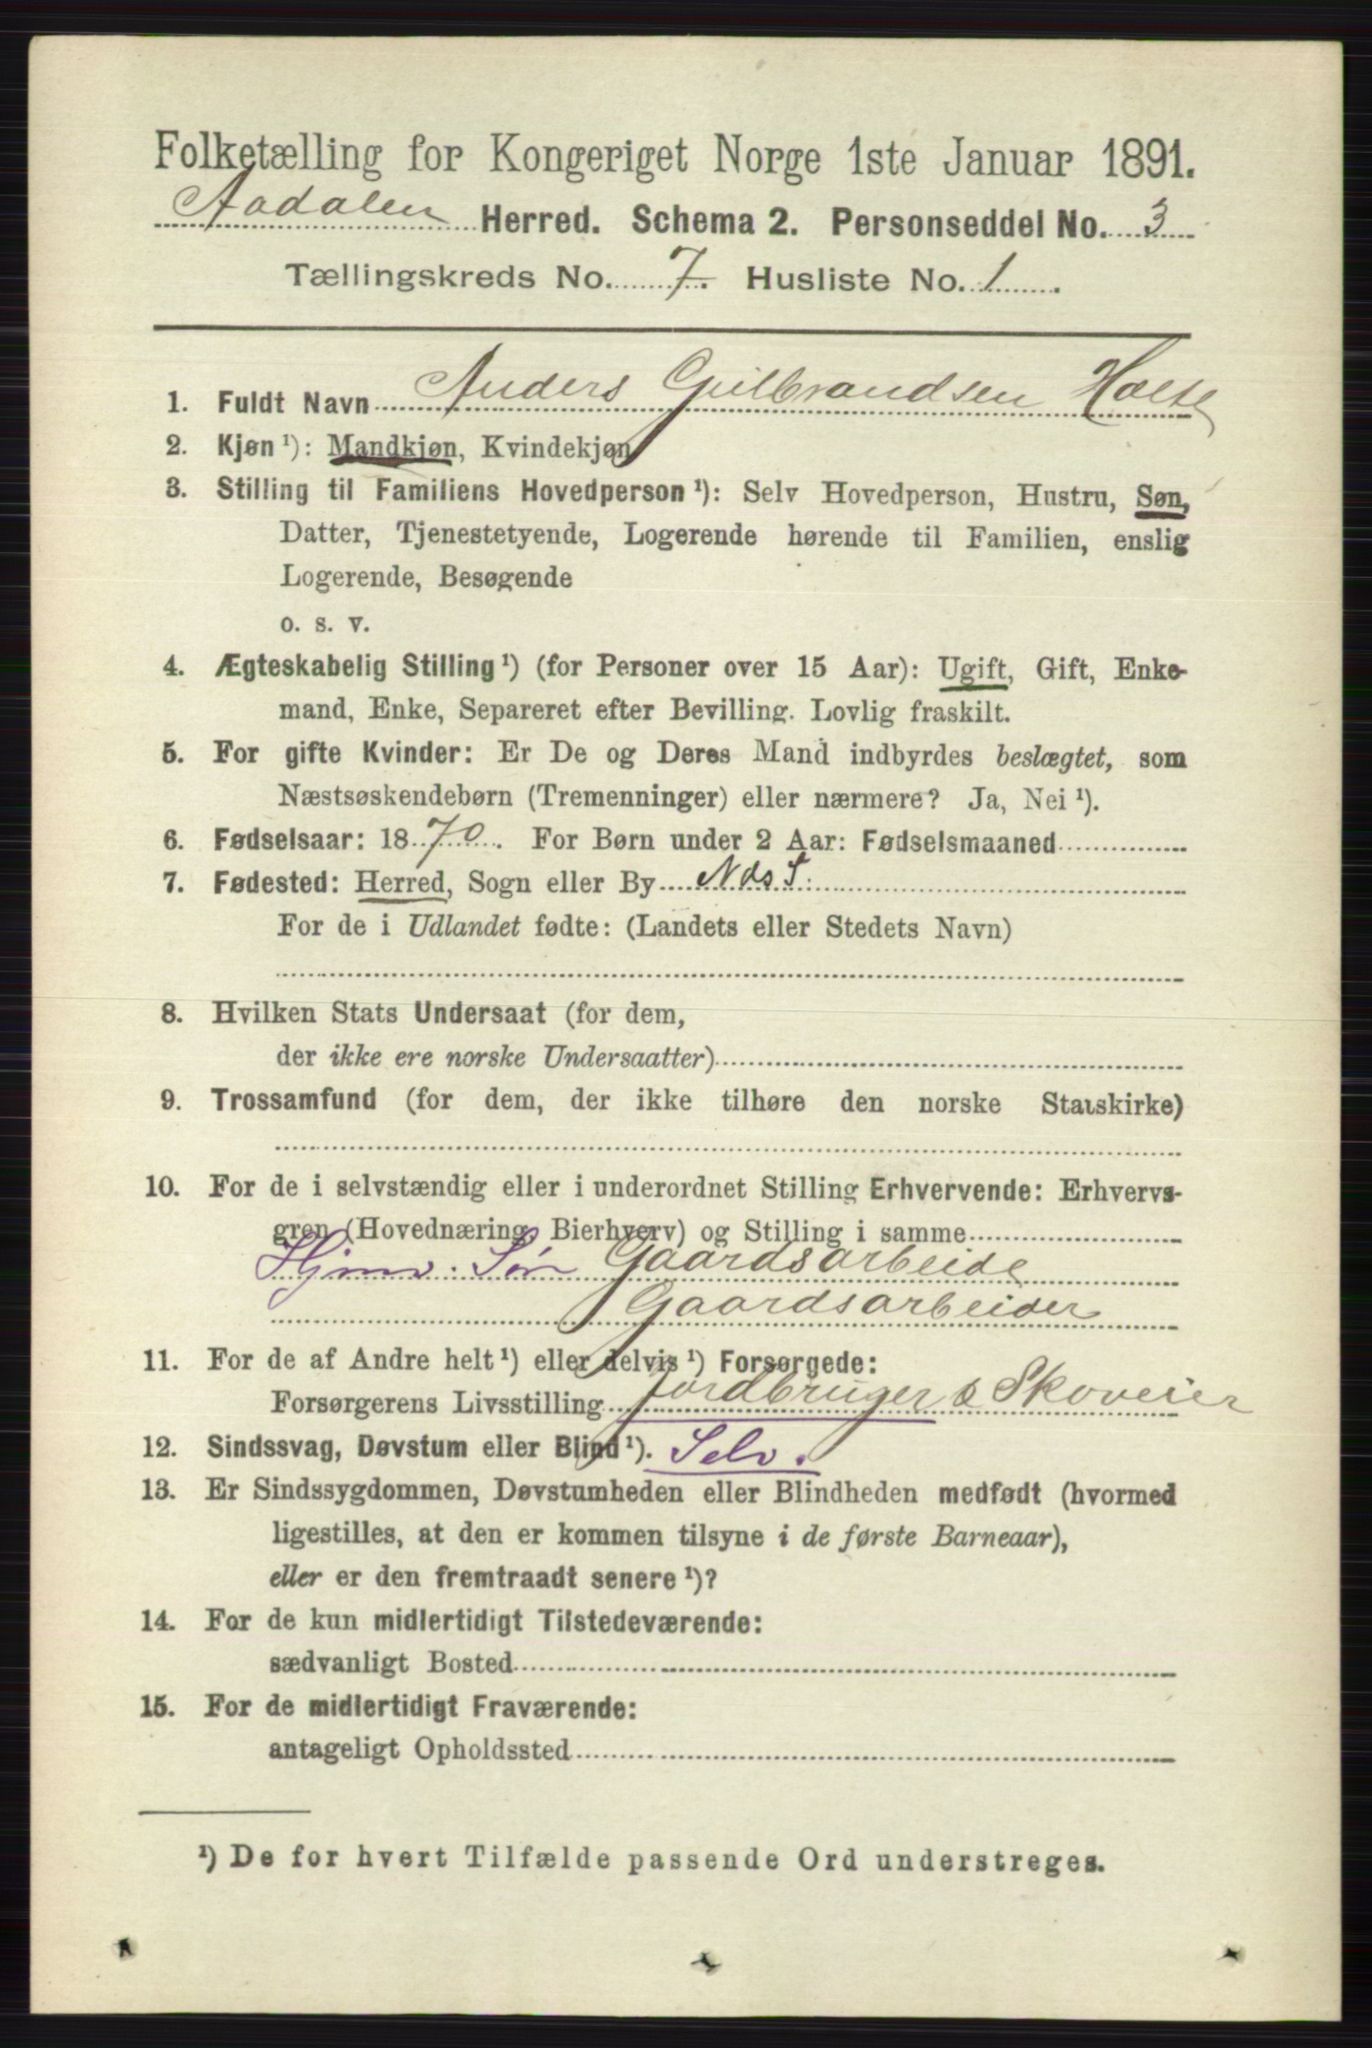 Folketælling for Kongeriget Norge 1ste Januar 1891.
Aadalen Herred. Schema 2. Personseddel No. 3
Tællingskreds No. 7. Husliste No. 1.
1. Fuldt Navn Anders Gulbrandsen Holte
2. Kjøn ¹): Mandkjøn, Kvindekjøn
3. Stilling til Familiens Hovedperson ¹): Selv Hovedperson, Hustru, Søn,
Datter, Tjenestetyende, Logerende hørende til Familien, enslig
Logerende, Besøgende
o. s. v.
4. Ægteskabelig Stilling ¹) (for Personer over 15 Aar): Ugift, Gift, Enke-
mand, Enke, Separeret efter Bevilling. Lovlig fraskilt.
5. For gifte Kvinder: Er De og Deres Mand indbyrdes beslægtet, som
Næstsøskendebørn (Tremenninger) eller nærmere? Ja, Nei ¹).
6. Fødselsaar: 1870. For Børn under 2 Aar: Fødselsmaaned
7. Fødested: Herred, Sogn eller By Nds S.
For de i Udlandet fødte: (Landets eller Stedets Navn)
8. Hvilken Stats Undersaat (for dem,
der ikke ere norske Undersaatter)
9. Trossamfund (for dem, der ikke tilhøre den norske Statskirke)
10. For de i selvstændig eller i underordnet Stilling Erhvervende: Erhvervs-
gren (Hovednæring, Bierhverv) og Stilling i samme
Hjmv. Søn Gaardsarbeide
Gaardsarbeider
11. For de af Andre helt ¹) eller delvis ¹) Forsørgede:
Forsørgerens Livsstilling Jordbruger & Skoveier
12. Sindssvag, Døvstum eller Blind ¹). Selv.
13. Er Sindssygdommen, Døvstumheden eller Blindheden medfødt (hvormed
ligestilles, at den er kommen tilsyne i de første Barneaar),
eller er den fremtraadt senere ¹)?
14. For de kun midlertidigt Tilstedeværende:
sædvanligt Bosted
15. For de midlertidigt Fraværende:
antageligt Opholdssted
¹) De for hvert Tilfælde passende Ord understreges.